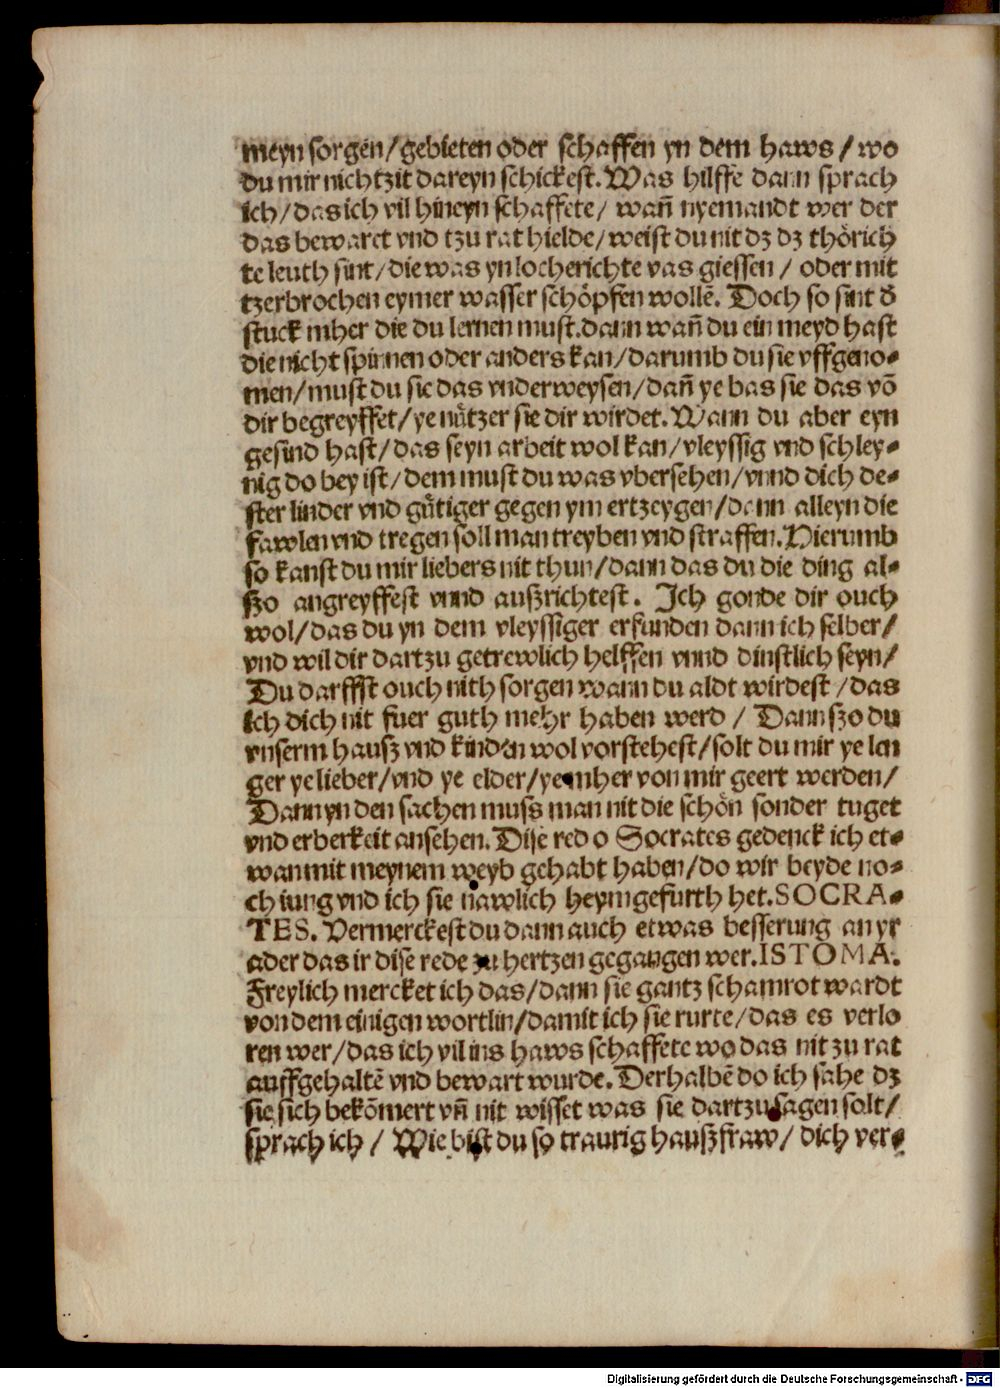 meyn sorgen/gebieten oder schaffen yn dem haws/wo
du mir nichtzit dareyn schickest. Was hilffe dann sprach
ich/das ich vil hineyn schaffete/ wañ nyemandt wer der
das bewaret vnd tzu rat hielde/weist du nit dz dz thörich
te leuth sint/die was yn locherichte vas giessen/ oder mit
tzerbrochen eymer wasser schöpfen wollē. Doch so sint ð
stuck mher die du lernen must.dann wañ du ein meyd hast
die nicht spinnen oder anders kan/darumb du sie vffgeno⸗
men/must du sie das vnderweysen/dañ ye bas sie das vō
dir begreyffet/ye nützer sie dir wirdet. Wann du aber eyn
gesind hast/das seyn arbeit wol kan/vleyssig vnd schley⸗
nig do bey ist/dem must du was vbersehen/vnnd dich de⸗
ster linder vnd gütiger gegen ym ertzeygen/dann alleyn die
fawlen vnd tregen soll man treyben vnd straffen. Hierumb
so kanst du mir liebers nit thun/dann das du die ding al⸗
ßo angreyffest vnnd außrichtest. Ich gonde dir ouch
wol/das du yn dem vleyssiger erfunden dann ich selber/
vnd wil dir dartzu getrewlich helffen vnnd dinstlich seyn/
Du darffst ouch nith sorgen wann du aldt wirdest/das
ich dich nit fuer guth mehr haben werd/ Dann szo du
vnserm hausz vnd kinden wol vorstehest/solt du mir ye len
ger ye lieber/vnd ye elder/ye mher von mir geert werden/
Dann yn den sachen muss man nit die schön sonder tuget
vnd erberkeit ansehen. Dise red o Socrates gedenck ich et⸗
wan mit meynem weyb gehabt haben/do wir beyde no⸗
ch iung vnd ich sie nawlich heymgefurth het. SOCRA⸗
TES. Vermerckest du dann auch etwas besserung an yr
ader das ir dise rede zu hertzen gegangen wer. ISTOMA.
Freylich mercket ich das/dann sie gantz schamrot wardt
von dem einigen wortlin/damit ich sie rurte/das es verlo
ren wer/das ich vil ins haws schaffete wo das nit zu rat
auffgehaltē vnd bewart wurde. Derhalbē do ich sahe dz
sie sich bekōmert vñ nit wisset was sie dartzu sagen solt/
sprach ich/ Wie bist du so traurig haußfraw/ dich ver⸗
Digitalisierung gefördert durch die Deutsche Forschungsgemeinschaft - DFG